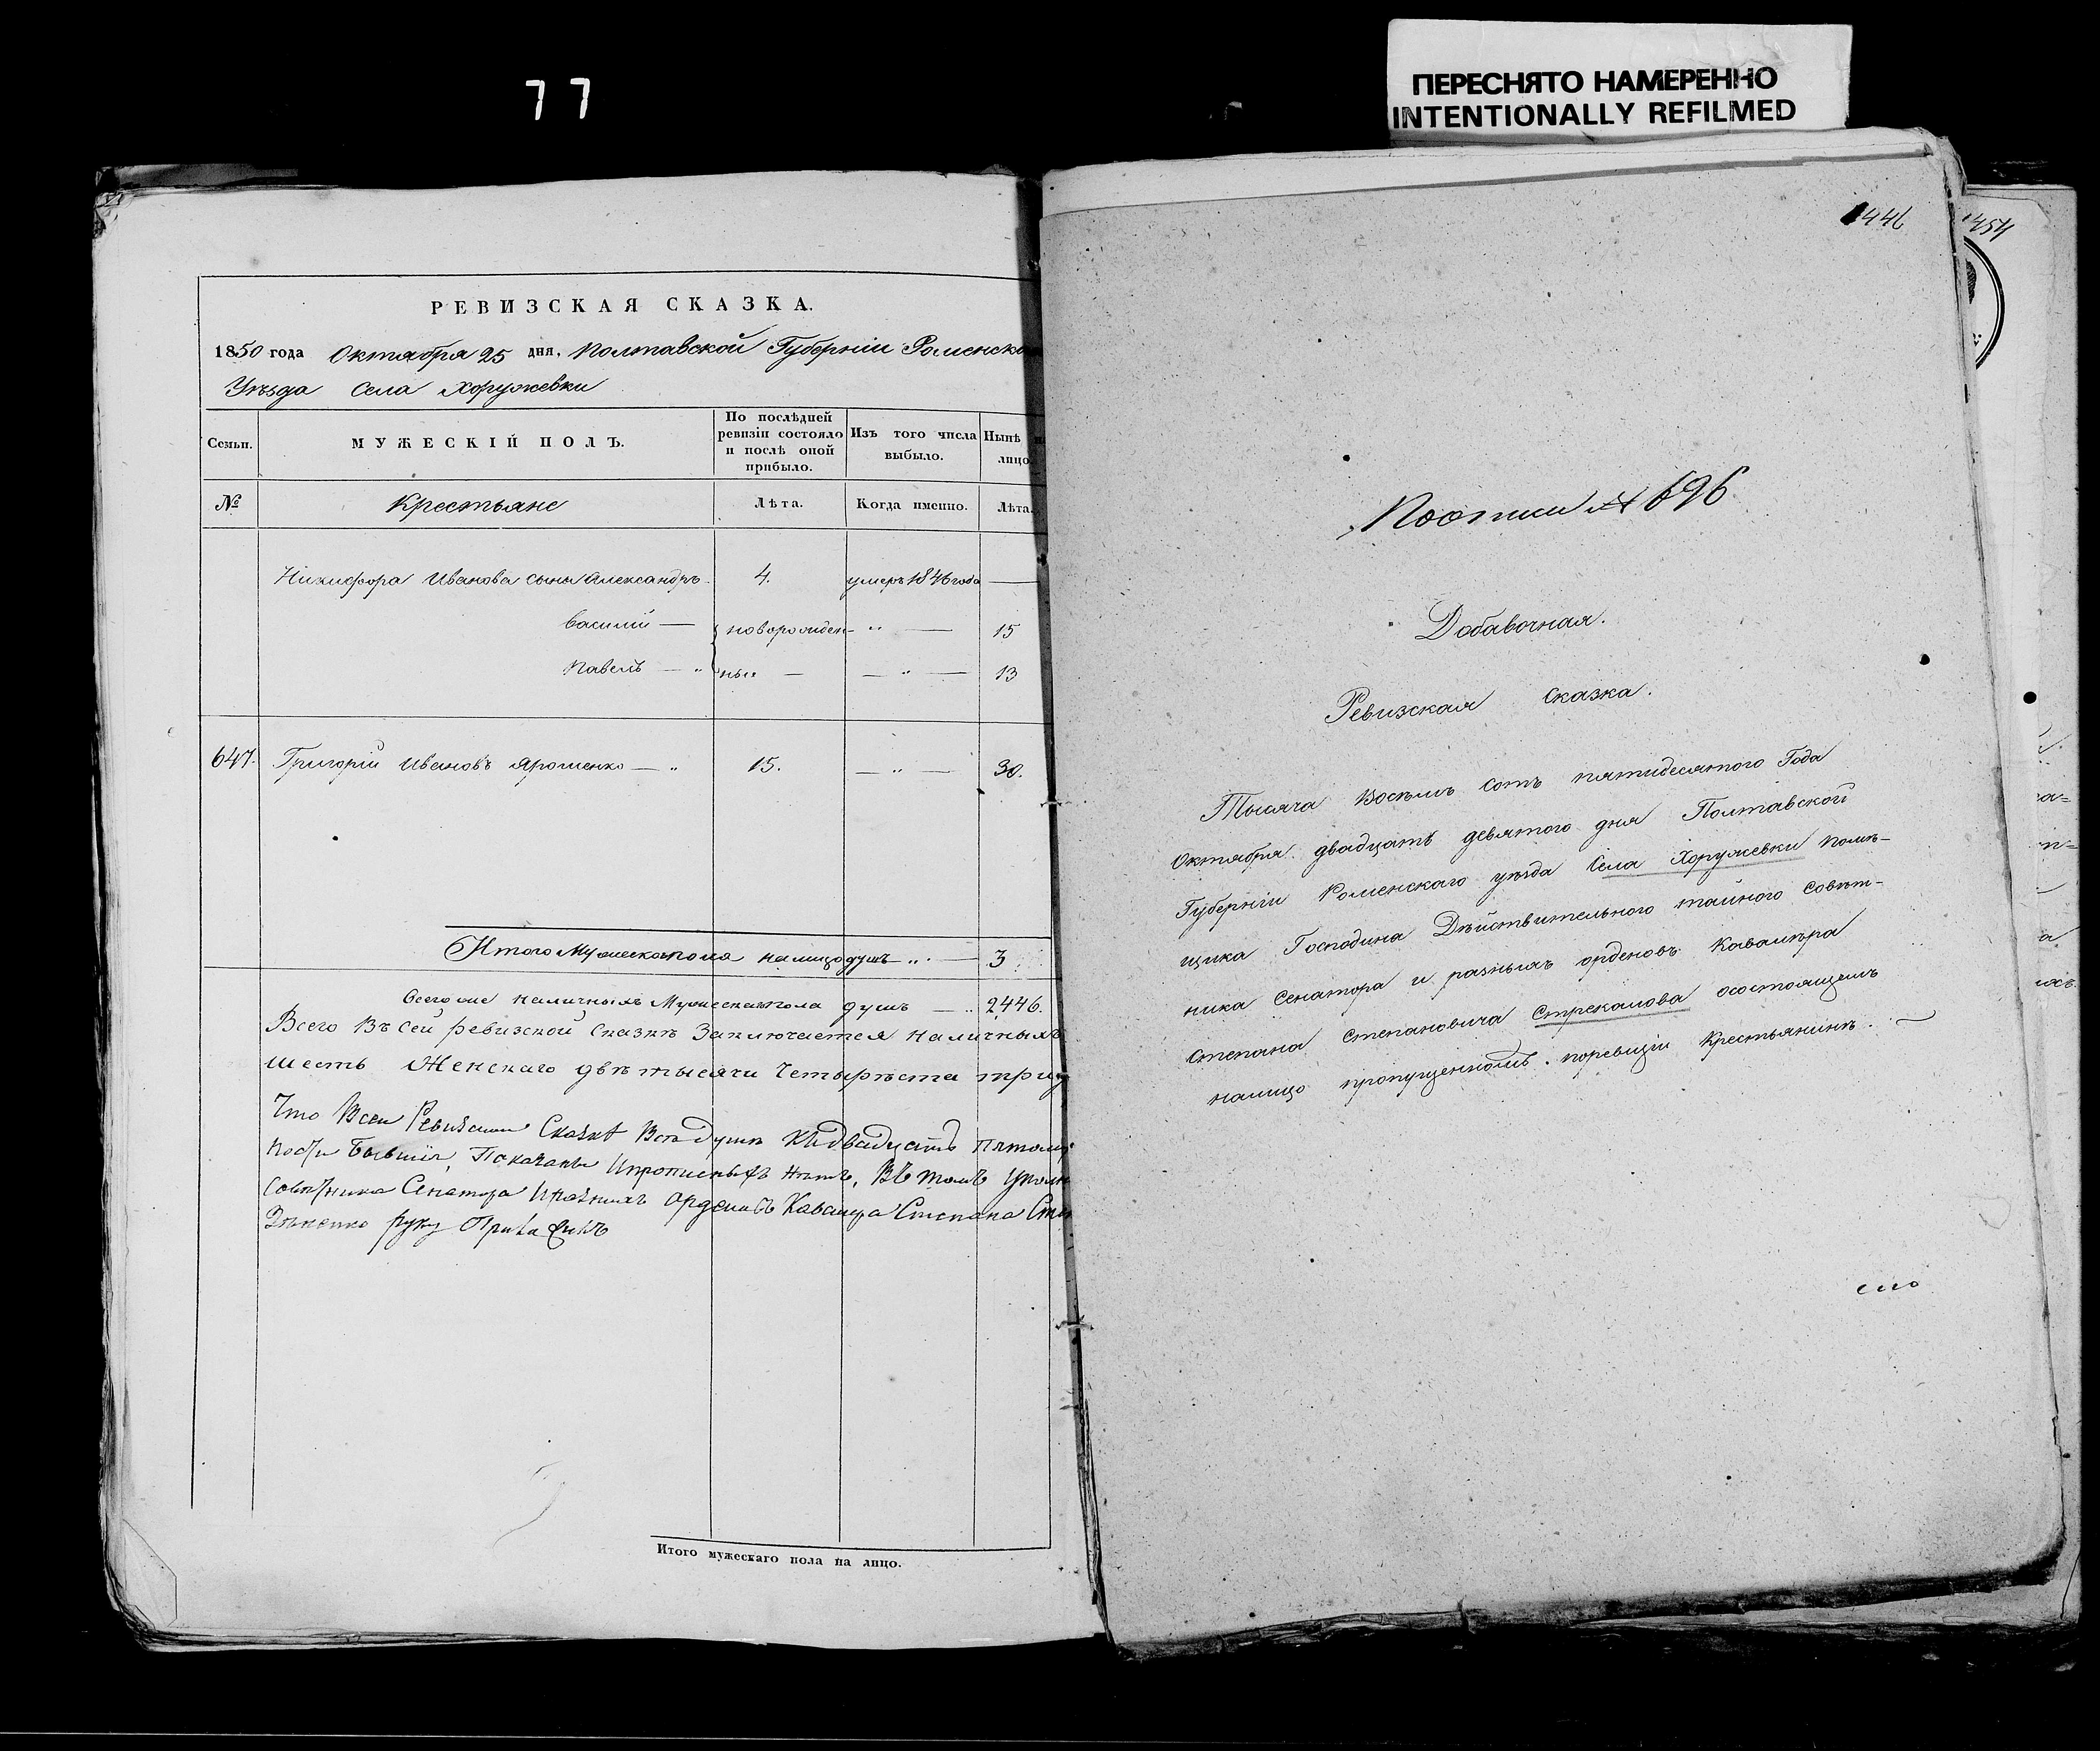 77
ПЕРЕСНЯТО НАМЕРЕННО
INTENTIONALLY REFILMED
РЕВИЗСКАЯ СКАЗКА.
1850 года Октября 25 дня, Полтавской Губерніи Роменска
Уѣзда Села Хоружевки
Семьи. МУЖЕСКІЙ ПОЛЪ. По послѣдней ревизіи состояло и послѣ оной прибыло. Изъ того числа выбыло. Нынѣ на лицо.
№ Крестьяне Лѣта. Когда именно. Лѣта.
Никифора Иванова сыны Александръ 4. умеръ 1846 года —
Василий — новорожден- „ — 15
Павелъ — „ ные — — „ — 13
647. Григорій Ивановъ Ярошенко — „ 15. — „ — 30.
Итого Мужеска пола налицо душъ „ — 3
Всего же наличныхъ Мужеска пола душъ — „ 2446.
Всего Въ сей ревизской Сказкѣ Заключается наличныхъ
шесть Женскаго двѣ тысячи Четыреста трид
Что Всей Ревизской Сказкѣ Всѣ души Кѣдвадцать пятому
Бывшія, Показаны Ипрописныхъ нѣтъ, Въ томъ
Совѣтника Сенатора Иразныхъ орденовъ Кавалера Степана
руку Приложилъ
Итого мужескаго пола на лицо.
1446
1454
По описи № 696
Добавочная.
Ревизская Сказка.
Тысяча Восѣмь Сотъ пятидесятого Года
Октября двадцать девятого дня Полтавской
Губерніи Роменскаго уѣзда Села Хоружевки помѣ-
щика Господина Дѣйствительного тайного Совѣт-
ника Сенатора и разныхъ орденовъ Кавалѣра
Степана Степановича Стрекалова осостоящемъ
налицо пропущенномъ поревизіи Крестьянинѣ.